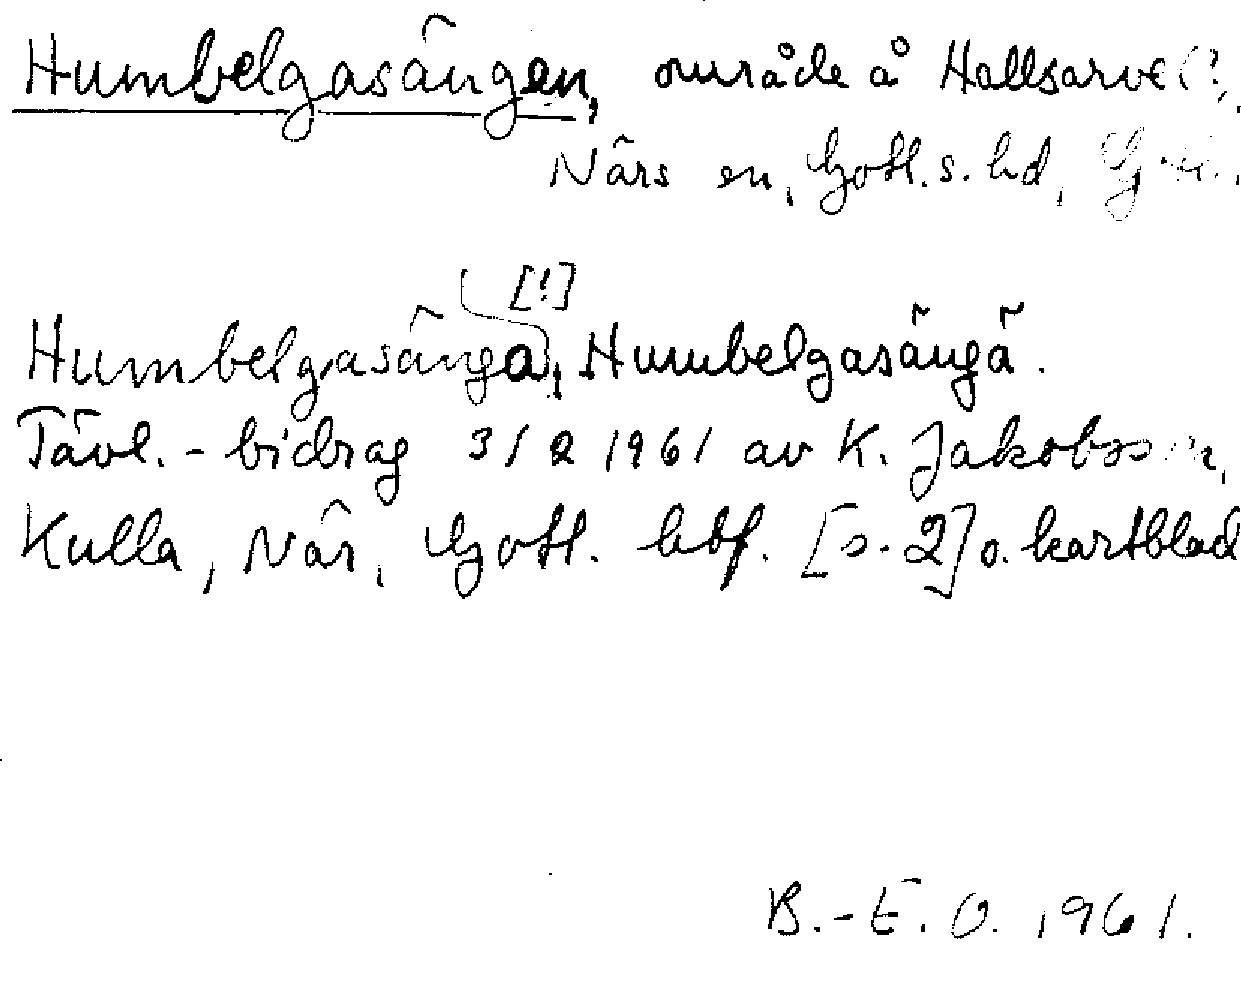 Humbelgasängen, område å Hallsarve (?,
Närs sn, Gotl. s. hd,
[!]
Humbelgasänga, Humbelgasängä.
Tävl.-bidrag 3/2 1961 av K. Jakobsson,
Kulla, När, Gotl. hbf. [s. 2] o. kartblad
B.-E. O. 1961.